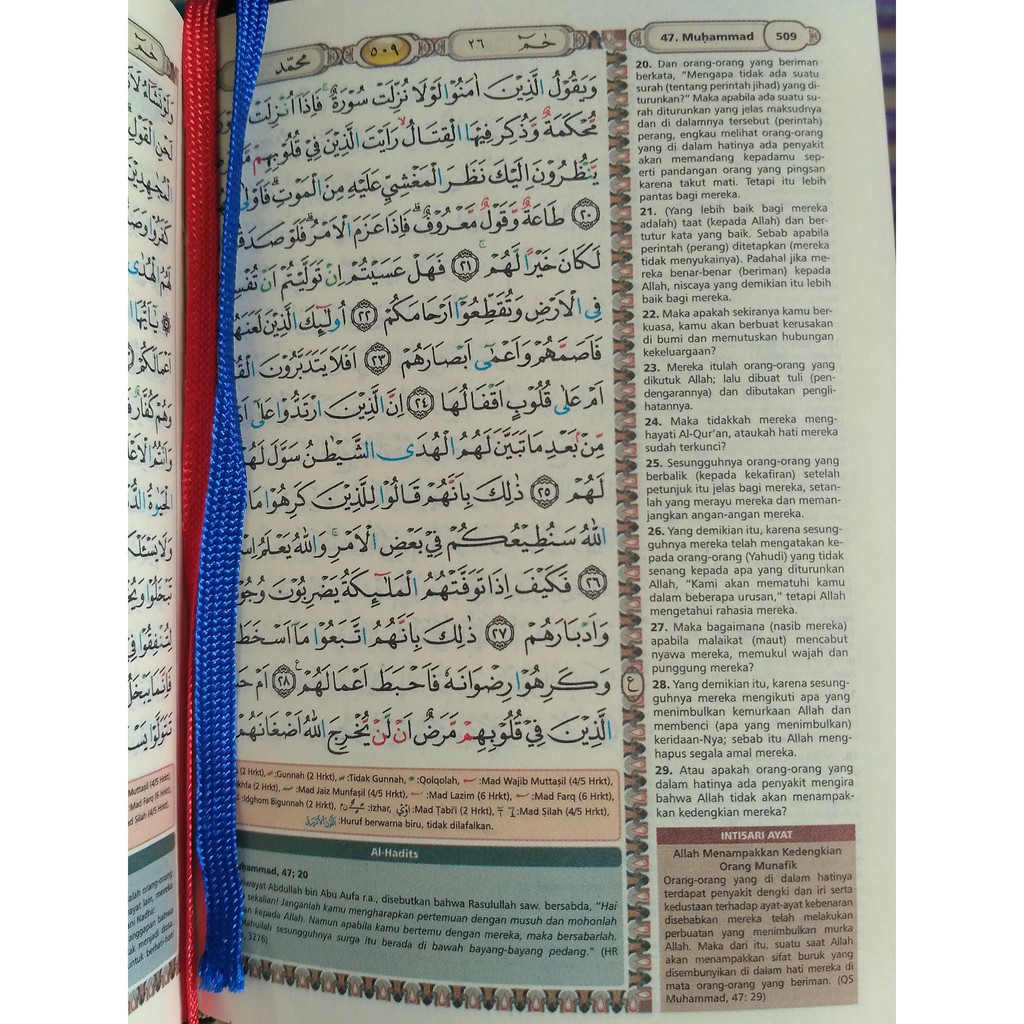 محمّد
٥٠٩
حٰمۤ ٢٦
47. Muḥammad 509
وَيَقُوْلُ الَّذِيْنَ اٰمَنُوْا لَوْلَا نُزِّلَتْ سُوْرَةٌ ۚ فَاِذَآ اُنْزِلَتْ
مُّحْكَمَةٌ وَّذُكِرَ فِيْهَا الْقِتَالُ ۙ رَاَيْتَ الَّذِيْنَ فِيْ قُلُوْبِهِمْ
يَّنْظُرُوْنَ اِلَيْكَ نَظَرَ الْمَغْشِيِّ عَلَيْهِ مِنَ الْمَوْتِ ۗ فَاَوْلٰى
٢٠ طَاعَةٌ وَّقَوْلٌ مَّعْرُوْفٌ ۗ فَاِذَا عَزَمَ الْاَمْرُ ۗ فَلَوْ
لَكَانَ خَيْرًا لَّهُمْ ۚ ٢١ فَهَلْ عَسَيْتُمْ اِنْ تَوَلَّيْتُمْ اَنْ
فِى الْاَرْضِ وَتُقَطِّعُوْٓا اَرْحَامَكُمْ ٢٢ اُولٰۤىِٕكَ الَّذِيْنَ
فَاَصَمَّهُمْ وَاَعْمٰٓى اَبْصَارَهُمْ ٢٣ اَفَلَا يَتَدَبَّرُوْنَ
اَمْ عَلٰى قُلُوْبٍ اَقْفَالُهَا ٢٤ اِنَّ الَّذِيْنَ ارْتَدُّوْا عَلٰٓى
مِّنْۢ بَعْدِ مَا تَبَيَّنَ لَهُمُ الْهُدَى الشَّيْطٰنُ سَوَّلَ
لَهُمْ ٢٥ ذٰلِكَ بِاَنَّهُمْ قَالُوْا لِلَّذِيْنَ كَرِهُوْا
اللّٰهُ سَنُطِيْعُكُمْ فِيْ بَعْضِ الْاَمْرِ ۚ وَاللّٰهُ يَعْلَمُ
٢٦ فَكَيْفَ اِذَا تَوَفَّتْهُمُ الْمَلٰۤىِٕكَةُ يَضْرِبُوْنَ
وَاَدْبَارَهُمْ ٢٧ ذٰلِكَ بِاَنَّهُمُ اتَّبَعُوْا مَآ
وَكَرِهُوْا رِضْوَانَهٗ فَاَحْبَطَ اَعْمَالَهُمْ ࣖ ٢٨ اَمْ
الَّذِيْنَ فِيْ قُلُوْبِهِمْ مَّرَضٌ اَنْ لَّنْ يُّخْرِجَ اللّٰهُ اَضْغَانَهُمْ
ع
(2 Hrkt), :Gunnah (2 Hrkt), :Tidak Gunnah, :Qolqolah, :Mad Wajib Muttaṣil (4/5 Hrkt),
(2 Hrkt), :Mad Jaiz Munfaṣil (4/5 Hrkt), :Mad Lazim (6 Hrkt), :Mad Farq (6 Hrkt),
:Idghom Bigunnah (2 Hrkt), :Izhar, :Mad Ṭabi'i (2 Hrkt), :Mad Ṣilah (4/5 Hrkt),
:Huruf berwarna biru, tidak dilafalkan.
Al-Hadits
47; 20
Abdullah bin Abu Aufa r.a., disebutkan bahwa Rasulullah saw, bersabda, "Hai
sekalian! Janganlah kamu mengharapkan pertemuan dengan musuh dan mohonlah
kepada Allah. Namun apabila kamu bertemu dengan mereka, maka bersabarlah.
sesungguhnya surga itu berada di bawah bayang-bayang pedang." (HR
3276)
20. Dan orang-orang yang beriman
berkata, "Mengapa tidak ada suatu
surah (tentang perintah jihad) yang di-
turunkan?" Maka apabila ada suatu su-
rah diturunkan yang jelas maksudnya
dan di dalamnya tersebut (perintah)
perang, engkau melihat orang-orang
yang di dalam hatinya ada penyakit
akan memandang kepadamu sep-
erti pandangan orang yang pingsan
karena takut mati. Tetapi itu lebih
pantas bagi mereka.
21. (Yang lebih baik bagi mereka
adalah) taat (kepada Allah) dan ber-
tutur kata yang baik. Sebab apabila
perintah (perang) ditetapkan (mereka
tidak menyukainya). Padahal jika me-
reka benar-benar (beriman) kepada
Allah, niscaya yang demikian itu lebih
baik bagi mereka.
22. Maka apakah sekiranya kamu ber-
kuasa, kamu akan berbuat kerusakan
di bumi dan memutuskan hubungan
kekeluargaan?
23. Mereka itulah orang-orang yang
dikutuk Allah; lalu dibuat tuli (pen-
dengarannya) dan dibutakan pengli-
hatannya.
24. Maka tidakkah mereka meng-
hayati Al-Qur'an, ataukah hati mereka
sudah terkunci?
25. Sesungguhnya orang-orang yang
berbalik (kepada kekafiran) setelah
petunjuk itu jelas bagi mereka, setan-
lah yang merayu mereka dan meman-
jangkan angan-angan mereka.
26. Yang demikian itu, karena sesung-
guhnya mereka telah mengatakan ke-
pada orang-orang (Yahudi) yang tidak
senang kepada apa yang diturunkan
Allah, "Kami akan mematuhi kamu
dalam beberapa urusan," tetapi Allah
mengetahui rahasia mereka.
27. Maka bagaimana (nasib mereka)
apabila malaikat (maut) mencabut
nyawa mereka, memukul wajah dan
punggung mereka?
28. Yang demikian itu, karena sesung-
guhnya mereka mengikuti apa yang
menimbulkan kemurkaan Allah dan
membenci (apa yang menimbulkan)
keridaan-Nya; sebab itu Allah meng-
hapus segala amal mereka.
29. Atau apakah orang-orang yang
dalam hatinya ada penyakit mengira
bahwa Allah tidak akan menampak-
kan kedengkian mereka?
INTISARI AYAT
Allah Menampakkan Kedengkian
Orang Munafik
Orang-orang yang di dalam hatinya
terdapat penyakit dengki dan iri serta
kedustaan terhadap ayat-ayat kebenaran
disebabkan mereka telah melakukan
perbuatan yang menimbulkan murka
Allah. Maka dari itu, suatu saat Allah
akan menampakkan sifat buruk yang
disembunyikan di dalam hati mereka di
mata orang-orang yang beriman. (QS
Muhammad, 47: 29)